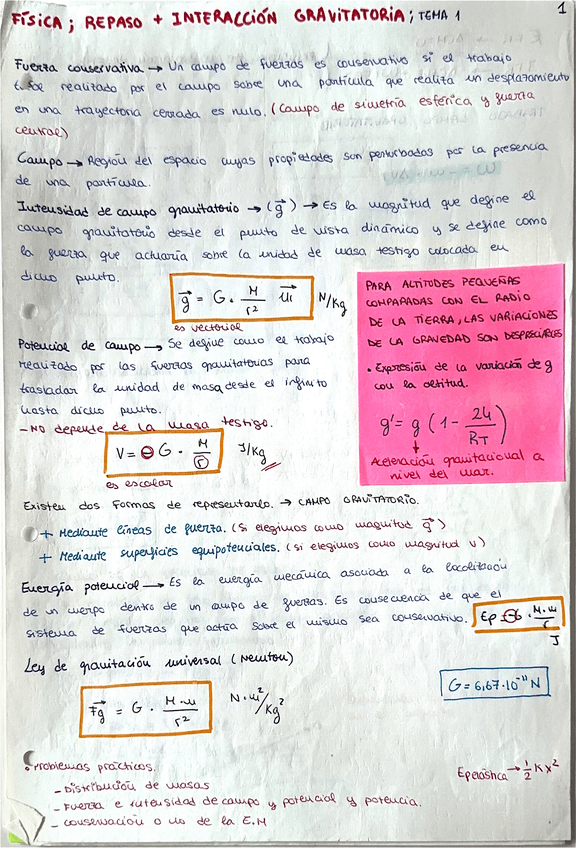 FÍSICA; REPASO + INTERACCIÓN GRAVITATORIA; TEMA 1
1
Fuerza conservativa → Un campo de fuerzas es conservativo si el trabajo
realizado por el campo sobre una partícula que realiza un desplazamiento
en una trayectoria cerrada es nulo. (Campo de simetría esférica y fuerza
central)
Campo → Región del espacio cuyas propiedades son perturbadas por la presencia
de una partícula.
Intensidad de campo gravitatorio → (g⃗) → Es la magnitud que define el
campo gravitatorio desde el punto de vista dinámico y se define como
la fuerza que actuaría sobre la unidad de masa testigo colocada en
dicho punto.
g⃗ = G · M/r² u⃗r N/Kg
es vectorial
PARA ALTITUDES PEQUEÑAS
COMPARADAS CON EL RADIO
DE LA TIERRA, LAS VARIACIONES
DE LA GRAVEDAD SON DESPRECIABLES
• Expresión de la variación de g
con la altitud.
g' = g (1 - 2h/R_T)
Aceleración gravitacional a
nivel del mar.
Potencial de campo → Se define como el trabajo
realizado por las fuerzas gravitatorias para
trasladar la unidad de masa desde el infinito
hasta dicho punto.
- NO depende de la masa testigo.
V = - G · M/r J/Kg
es escalar
Existen dos formas de representarlo. → CAMPO GRAVITATORIO.
+ Mediante líneas de fuerza. (Si elegimos como magnitud g⃗)
+ Mediante superficies equipotenciales. (si elegimos como magnitud V)
Energía potencial → Es la energía mecánica asociada a la localización
de un cuerpo dentro de un campo de fuerzas. Es consecuencia de que el
sistema de fuerzas que actúa sobre el mismo sea conservativo.
Ep = -G · M·m/r
J
Ley de gravitación universal (Newton)
F⃗g = G · M·m/r² N·m²/Kg²
G = 6,67·10⁻¹¹ N
• Problemas prácticos.
Epelástica → 1/2 K x²
- Distribución de masas
- Fuerza e intensidad de campo y potencial y potencia.
- conservación o no de la E.M